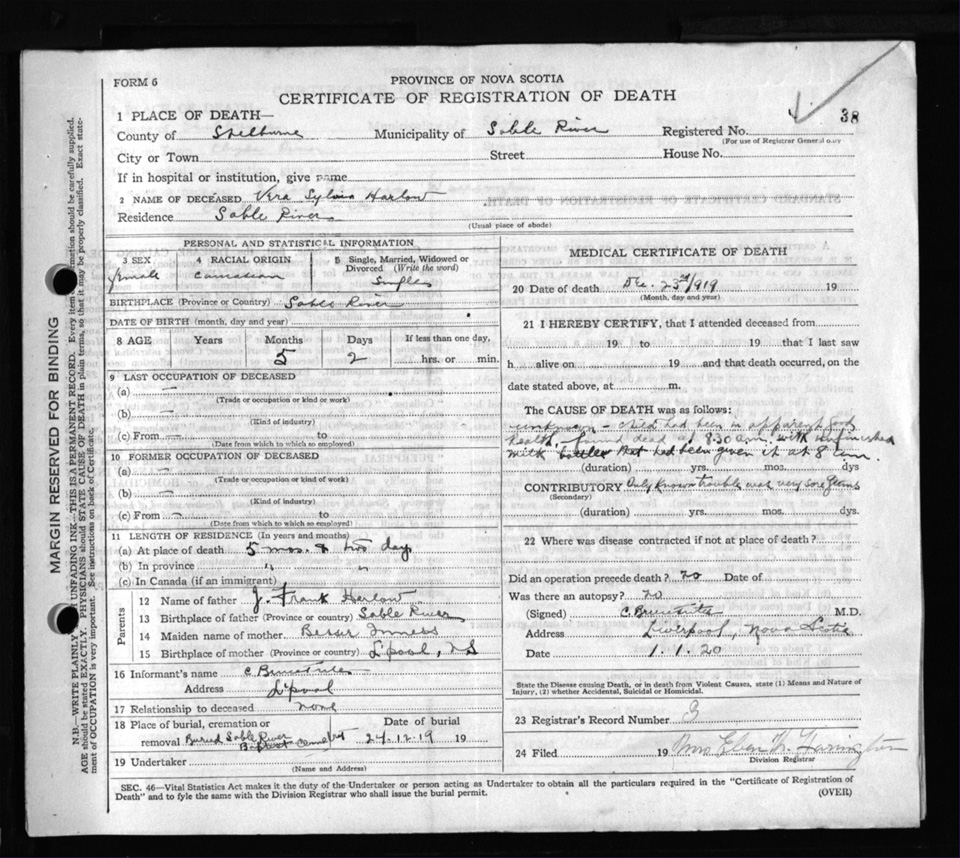 FORM 6
PROVINCE OF NOVA SCOTIA
CERTIFICATE OF REGISTRATION OF DEATH
38
1 PLACE OF DEATH—
County of Shelburne Municipality of Sable River Registered No.
(For use of Registrar General only
City or Town Street House No.
If in hospital or institution, give name
2 NAME OF DECEASED Vera Sylvia Harlow
Residence Sable River
(Usual place of abode)
PERSONAL AND STATISTICAL INFORMATION
3 SEX 4 RACIAL ORIGIN 5 Single, Married, Widowed or Divorced (Write the word)
female Single
BIRTHPLACE (Province or Country) Sable River
DATE OF BIRTH (month, day and year)
8 AGE Years Months Days If less than one day,
5 2 hrs. or min.
9 LAST OCCUPATION OF DECEASED
(a) —
(Trade or occupation or kind or work)
(b) —
(Kind of industry)
(c) From — to
(Date from which to which so employed)
10 FORMER OCCUPATION OF DECEASED
(a) —
(Trade or occupation or kind of work)
(b) —
(Kind of industry)
(c) From — to
(Date from which to which so employed)
11 LENGTH OF RESIDENCE (In years and months)
(a) At place of death 5 mos. & two days
(b) In province " "
(c) In Canada (if an immigrant)
Parents
12 Name of father J. Frank Harlow
13 Birthplace of father (Province or country) Sable River
14 Maiden name of mother Inness
15 Birthplace of mother (Province or country) L'pool, NS
16 Informant's name C
Address L'pool
17 Relationship to deceased none
18 Place of burial, cremation or Date of burial
removal Buried Sable River 24.12.19 19
Baptist Cemetery
19 Undertaker
(Name and Address)
MEDICAL CERTIFICATE OF DEATH
20 Date of death Dec. 23rd 1919 19
(Month, day and year)
21 I HEREBY CERTIFY, that I attended deceased from
19 to 19 that I last saw
h alive on 19 and that death occurred, on the
date stated above, at m.
The CAUSE OF DEATH was as follows:
unknown – child had been in apparently
health, found dead at 8.30 a.m. with unfinished
milk bottle that had been given it at 8 a.m.
(duration) yrs. mos. dys
CONTRIBUTORY Only known trouble was very sore
(Secondary)
(duration) yrs. mos. dys.
22 Where was disease contracted if not at place of death?
Did an operation precede death? no Date of
Was there an autopsy? no
(Signed) C. M.D.
Address Liverpool, Nova Scotia
Date 1.1.20
State the Disease causing Death, or in death from Violent Causes, state (1) Means and Nature of
Injury, (2) whether Accidental, Suicidal or Homicidal.
23 Registrar's Record Number 3
24 Filed 19 Mrs Eben
Division Registrar
SEC. 46—Vital Statistics Act makes it the duty of the Undertaker or person acting as Undertaker to obtain all the particulars required in the "Certificate of Registration of
Death" and to fyle the same with the Division Registrar who shall issue the burial permit.
(OVER)
MARGIN RESERVED FOR BINDING
N.B.—WRITE PLAINLY UNFADING INK—THIS IS A PERMANENT RECORD. Every item information should be carefully supplied.
AGE should be stated EXACTLY. PHYSICIANS should STATE CAUSE OF DEATH in plain terms, so that it may be properly classified. Exact state-
ment of OCCUPATION is very important. See instructions on back of Certificate.